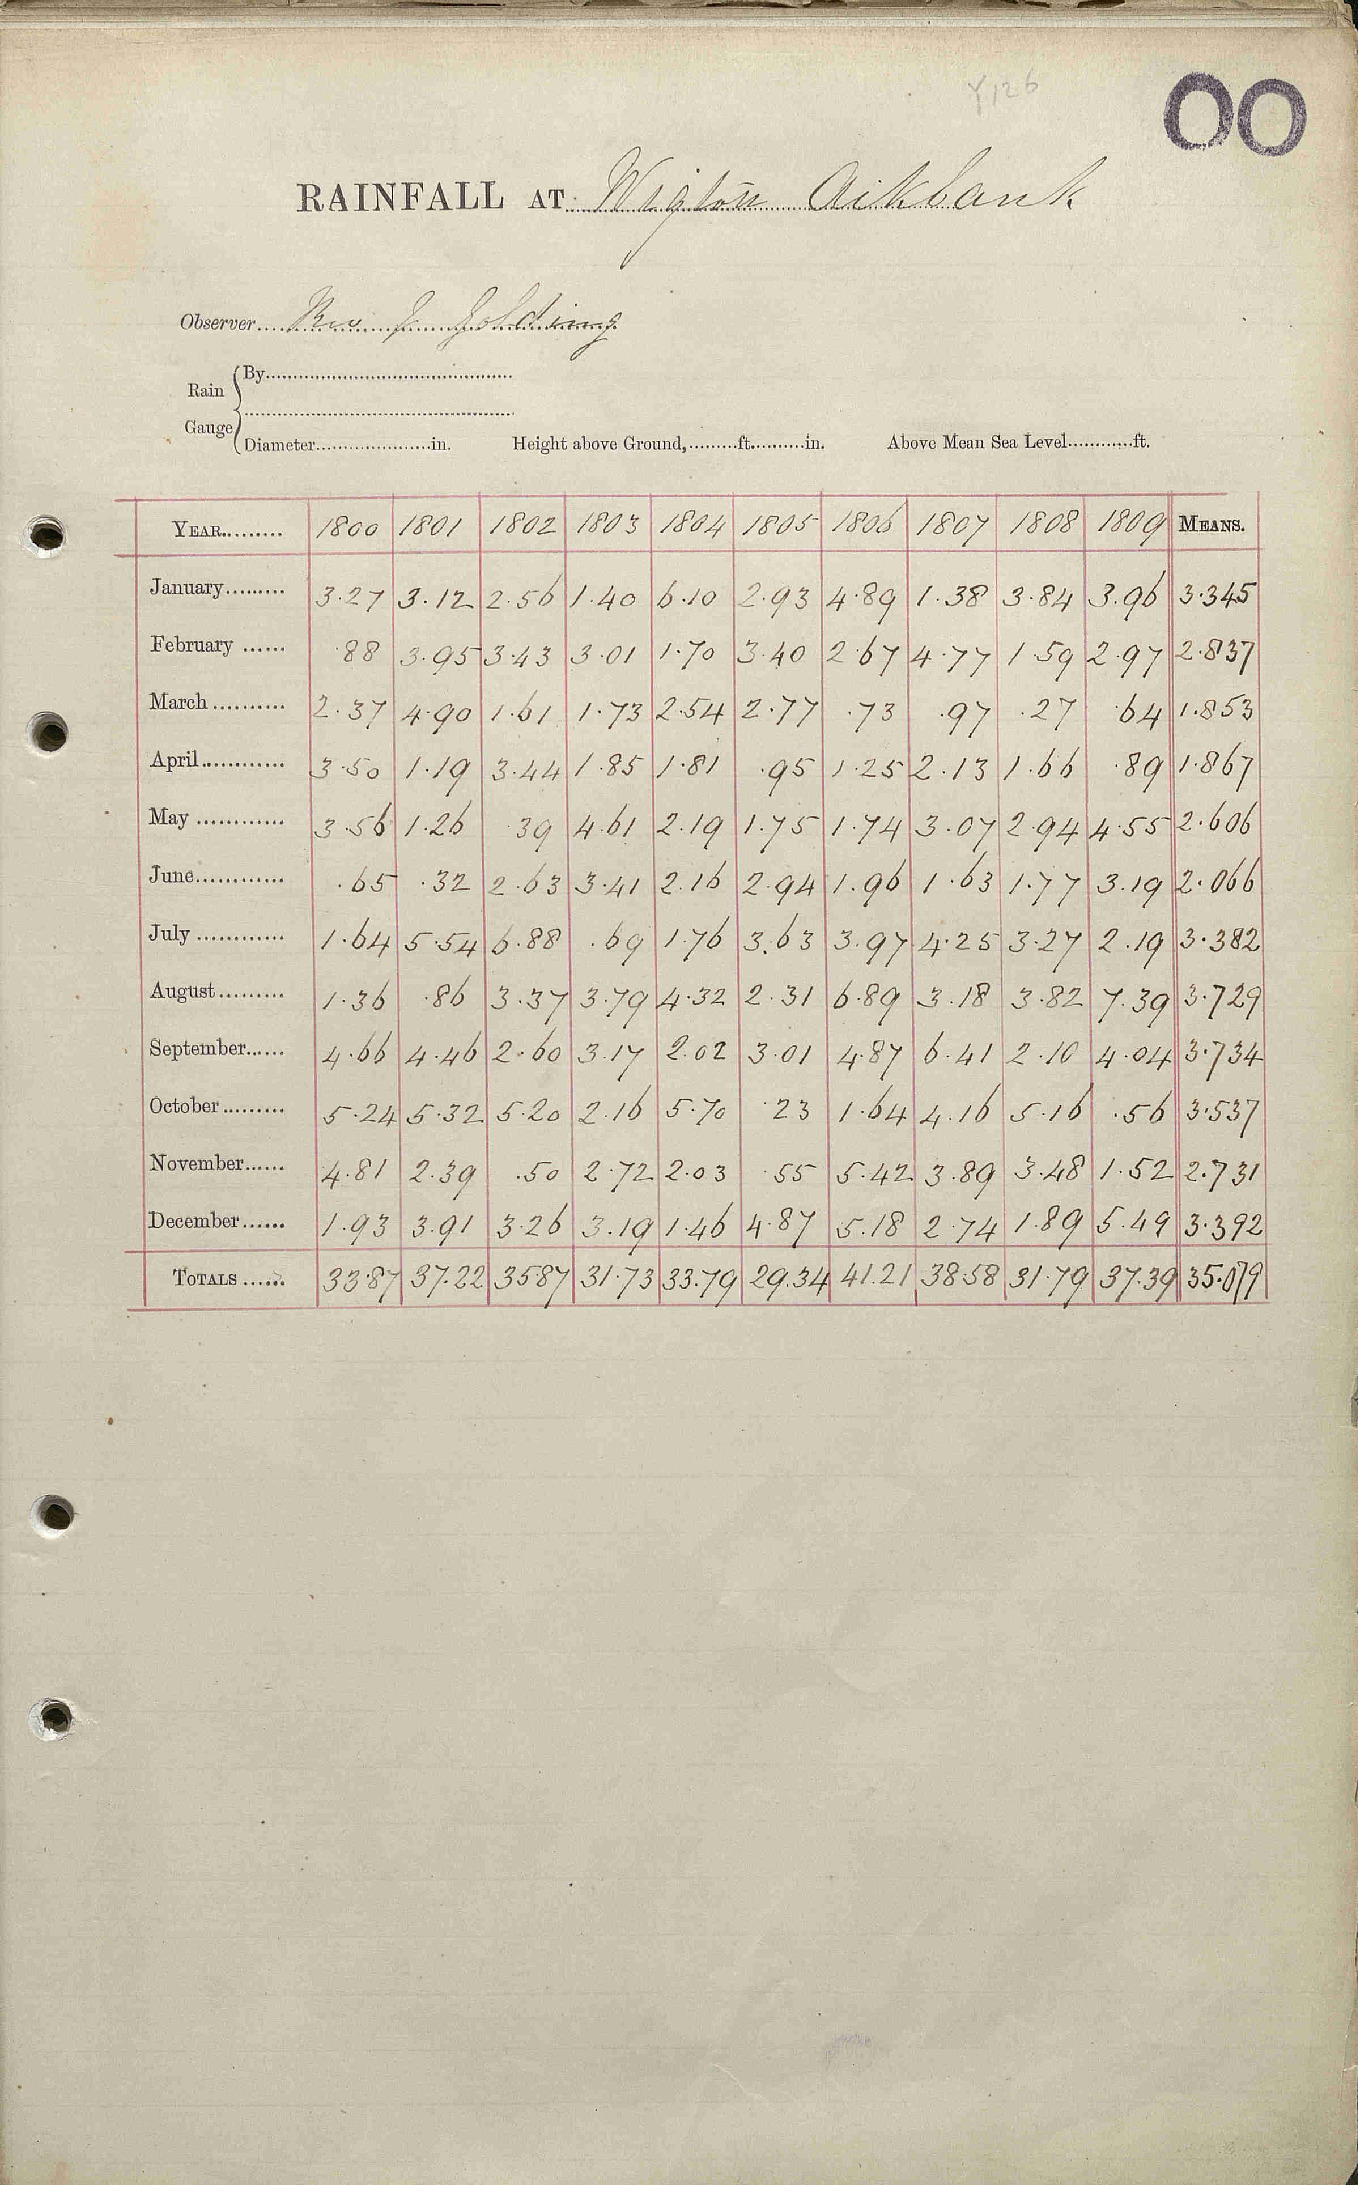 Y126
00
RAINFALL AT Wigton Aikbank
Observer Rev J Golding
Rain Gauge
By
Diameter in. Height above Ground, ft. in. Above Mean Sea Level ft.
YEAR 1800 1801 1802 1803 1804 1805 1806 1807 1808 1809 MEANS.
January 3.27 3.12 2.56 1.40 6.10 2.93 4.89 1.38 3.84 3.96 3.345
February .88 3.95 3.43 3.01 1.70 3.40 2.67 4.77 1.59 2.97 2.837
March 2.37 4.90 1.61 1.73 2.54 2.77 .73 .97 .27 .64 1.853
April 3.50 1.19 3.44 1.85 1.81 .95 1.25 2.13 1.66 .89 1.867
May 3.56 1.26 .39 4.61 2.19 1.75 1.74 3.07 2.94 4.55 2.606
June .65 .32 2.63 3.41 2.16 2.94 1.96 1.63 1.77 3.19 2.066
July 1.64 5.54 6.88 .69 1.76 3.63 3.97 4.25 3.27 2.19 3.382
August 1.36 .86 3.37 3.79 4.32 2.31 6.89 3.18 3.82 7.39 3.729
September 4.66 4.46 2.60 3.17 2.02 3.01 4.87 6.41 2.10 4.04 3.734
October 5.24 5.32 5.20 2.16 5.70 .23 1.64 4.16 5.16 .56 3.537
November 4.81 2.39 .50 2.72 2.03 .55 5.42 3.89 3.48 1.52 2.731
December 1.93 3.91 3.26 3.19 1.46 4.87 5.18 2.74 1.89 5.49 3.392
TOTALS 33.87 37.22 35.87 31.73 33.79 29.34 41.21 38.58 31.79 37.39 35.079